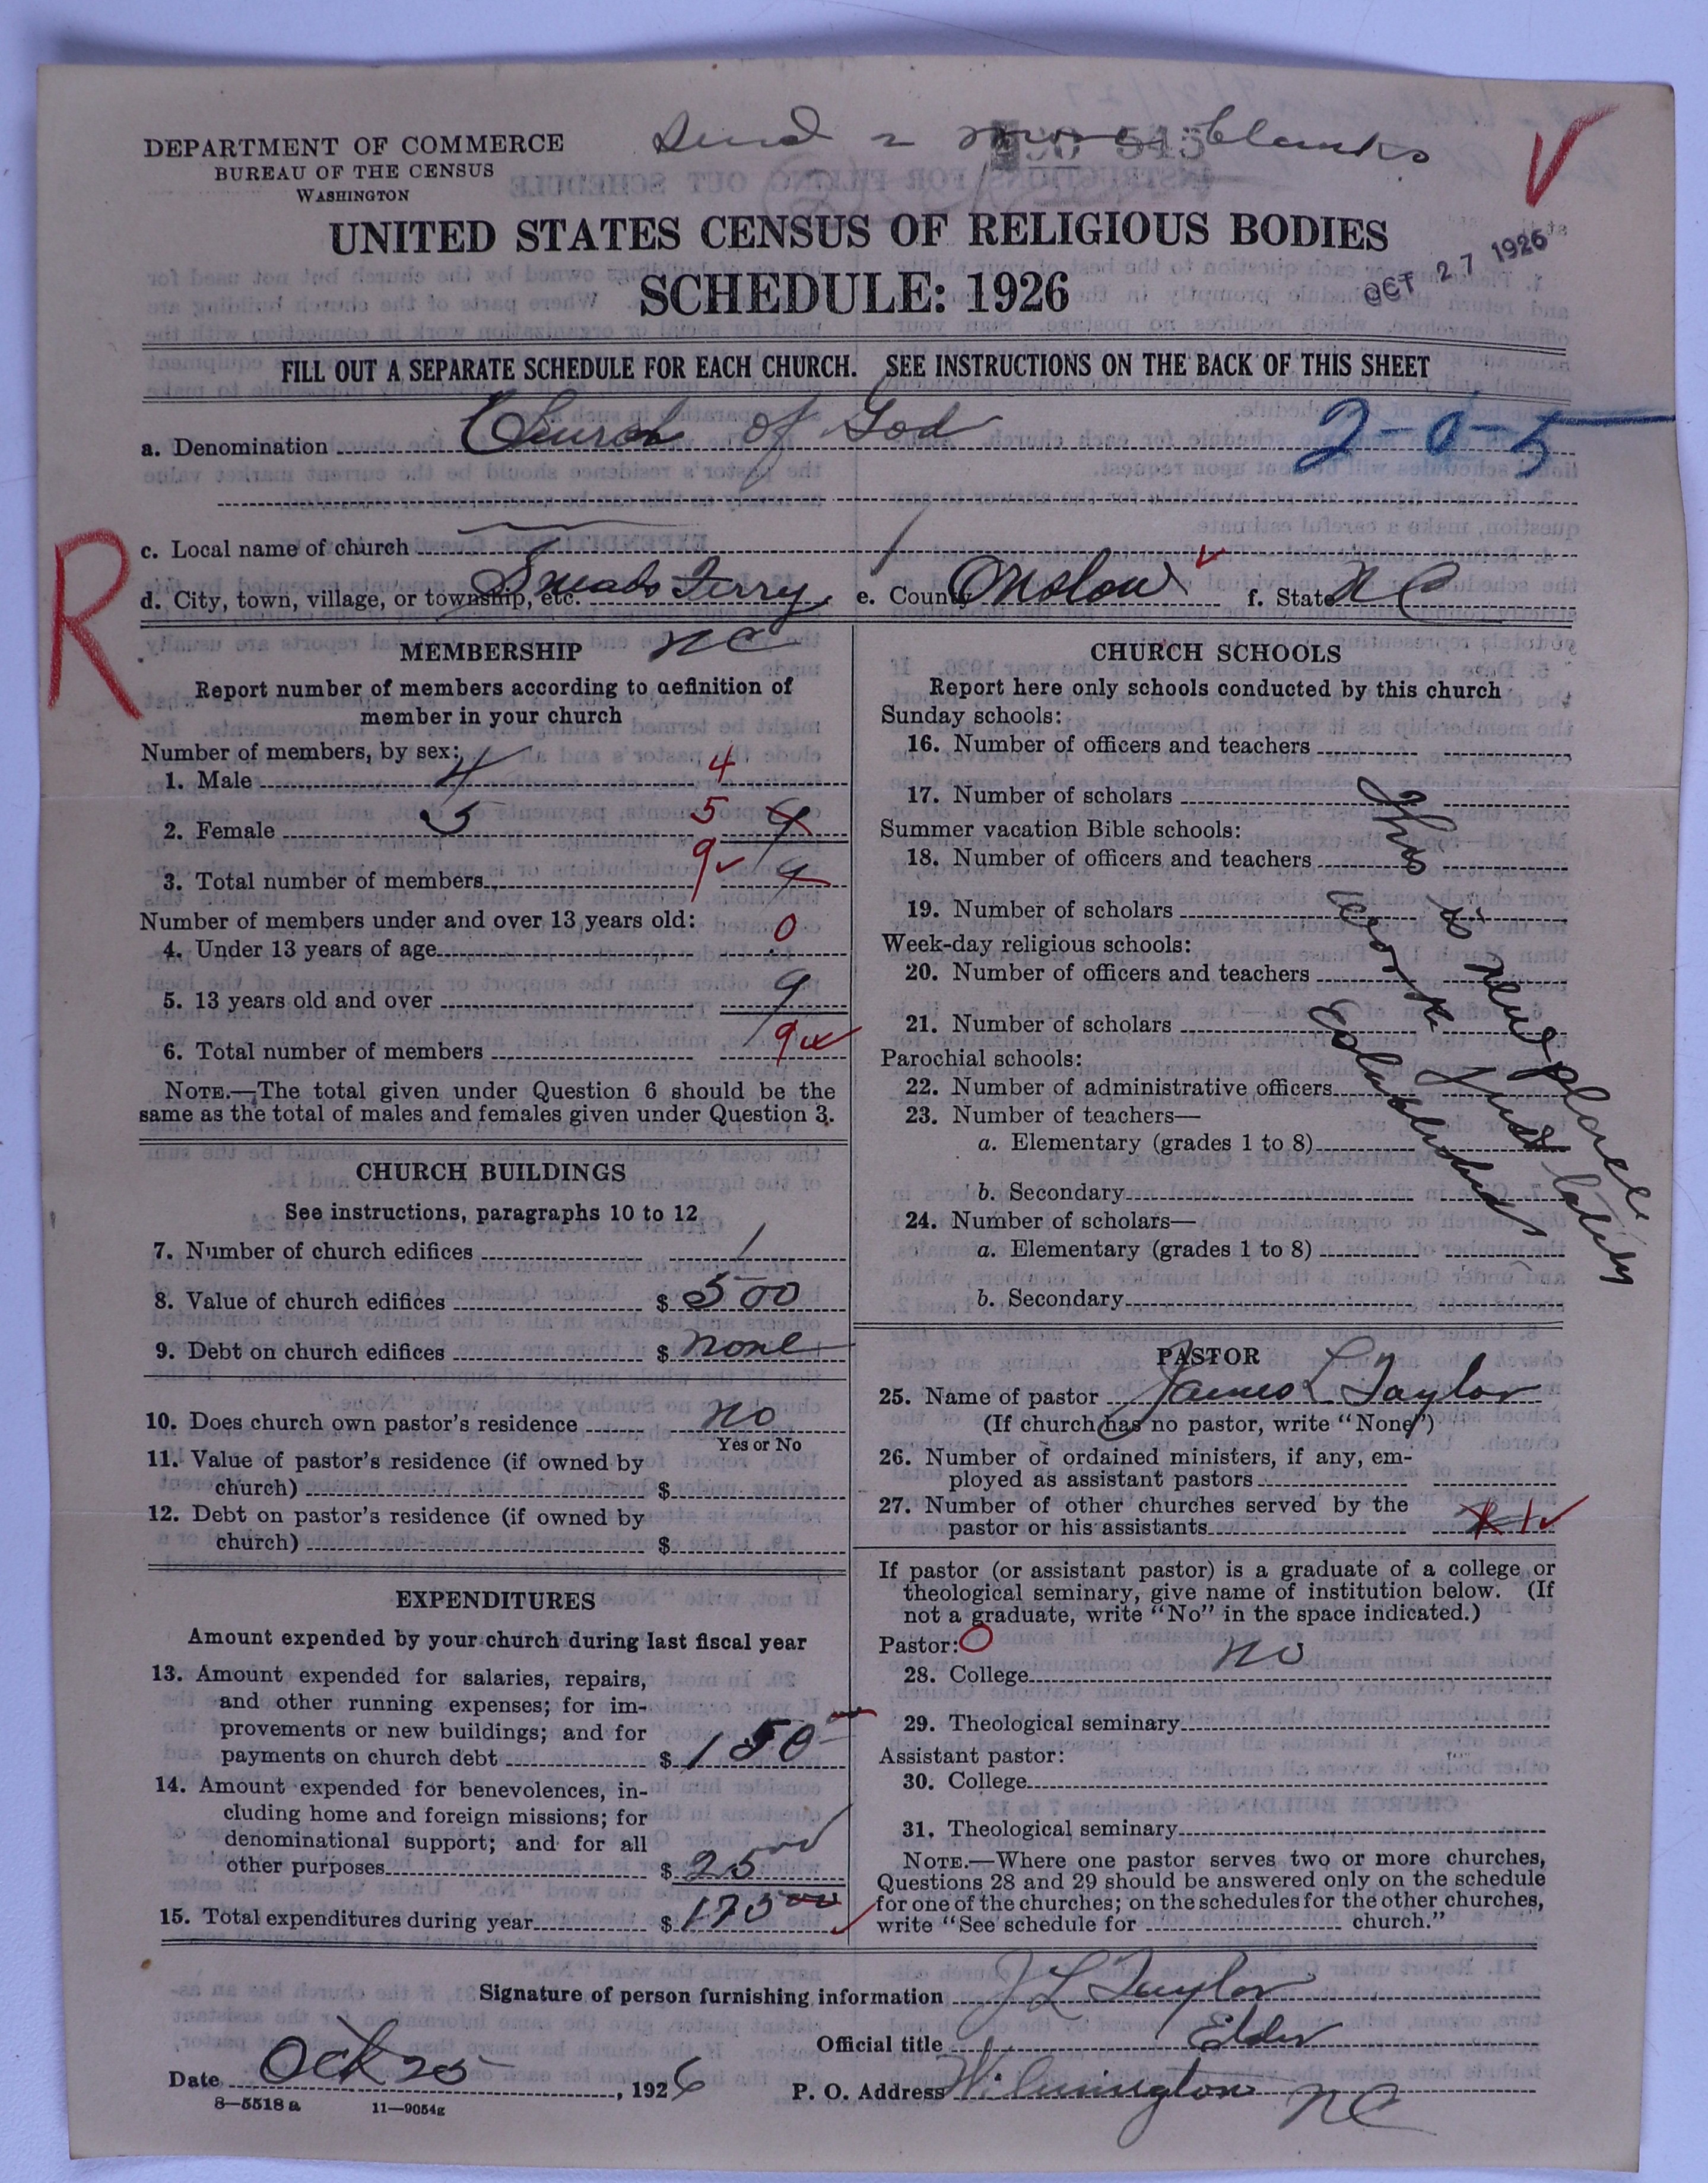 Send 2 more blanks
DEPARTMENT OF COMMERCE
BUREAU OF THE CENSUS
WASHINGTON
UNITED STATES CENSUS OF RELIGIOUS BODIES
SCHEDULE: 1926
OCT 27 1926
FILL OUT A SEPARATE SCHEDULE FOR EACH CHURCH. SEE INSTRUCTIONS ON THE BACK OF THIS SHEET
a. Denomination Church of God 2-0-5
c. Local name of church
d. City, town, village, or township, etc. Sneads Ferry, e. County Onslow f. State N C
N C
R
MEMBERSHIP
Report number of members according to definition of
member in your church
Number of members, by sex:
1. Male 4 4
2. Female 5 5 9
3. Total number of members 9 9
Number of members under and over 13 years old:
4. Under 13 years of age 0
5. 13 years old and over 9
6. Total number of members 9
NOTE.—The total given under Question 6 should be the
same as the total of males and females given under Question 3.
CHURCH BUILDINGS
See instructions, paragraphs 10 to 12
7. Number of church edifices 1
8. Value of church edifices $ 500
9. Debt on church edifices $ none
10. Does church own pastor's residence no
Yes or No
11. Value of pastor's residence (if owned by
church) $
12. Debt on pastor's residence (if owned by
church) $
EXPENDITURES
Amount expended by your church during last fiscal year
13. Amount expended for salaries, repairs,
and other running expenses; for im-
provements or new buildings; and for
payments on church debt $ 150
14. Amount expended for benevolences, in-
cluding home and foreign missions; for
denominational support; and for all
other purposes $ 25 00
15. Total expenditures during year $ 175 00
CHURCH SCHOOLS
Report here only schools conducted by this church
Sunday schools:
16. Number of officers and teachers
17. Number of scholars
Summer vacation Bible schools:
18. Number of officers and teachers
19. Number of scholars
Week-day religious schools:
20. Number of officers and teachers
21. Number of scholars
Parochial schools:
22. Number of administrative officers
23. Number of teachers—
a. Elementary (grades 1 to 8)
b. Secondary
24. Number of scholars—
a. Elementary (grades 1 to 8)
b. Secondary
This is new place
work just lately
Established
PASTOR
25. Name of pastor James L Taylor
(If church has no pastor, write "None")
26. Number of ordained ministers, if any, em-
ployed as assistant pastors
27. Number of other churches served by the
pastor or his assistants 1
If pastor (or assistant pastor) is a graduate of a college or
theological seminary, give name of institution below. (If
not a graduate, write "No" in the space indicated.)
Pastor: O
28. College no
29. Theological seminary
Assistant pastor:
30. College
31. Theological seminary
NOTE.—Where one pastor serves two or more churches,
Questions 28 and 29 should be answered only on the schedule
for one of the churches; on the schedules for the other churches,
write "See schedule for church."
Signature of person furnishing information J L Taylor
Official title Elder
Date Oct 25, 1926 P. O. Address Wilmington N C
8—5518 a 11—9054g